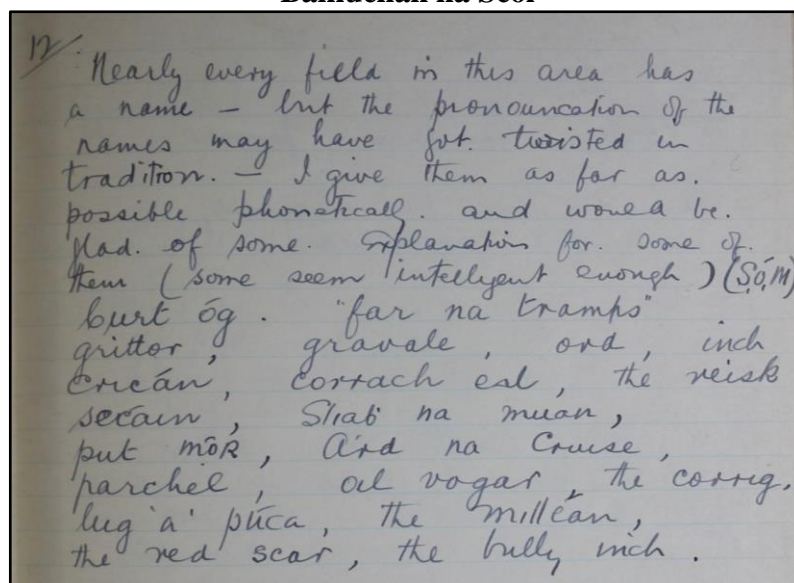 12/
Nearly every field in this area has
a name – but the pronouncation of the
names may have got twisted in
tradition. – I give them as far as.
possible phonetically. and would be.
glad. of some. explanation for. some of.
them (some seem intelligent enough) (S,Ó,M)
burt óg. "far na tramps"
grittor, gravale, ord, inch
cricán, corrach eal, the reisk
secáin, Sliab na muan,
put mōR, Árd na Cruise,
parchél, oil vogar, the corrig,
lug 'a' púca, the milleán,
the red scar, the bully inch.